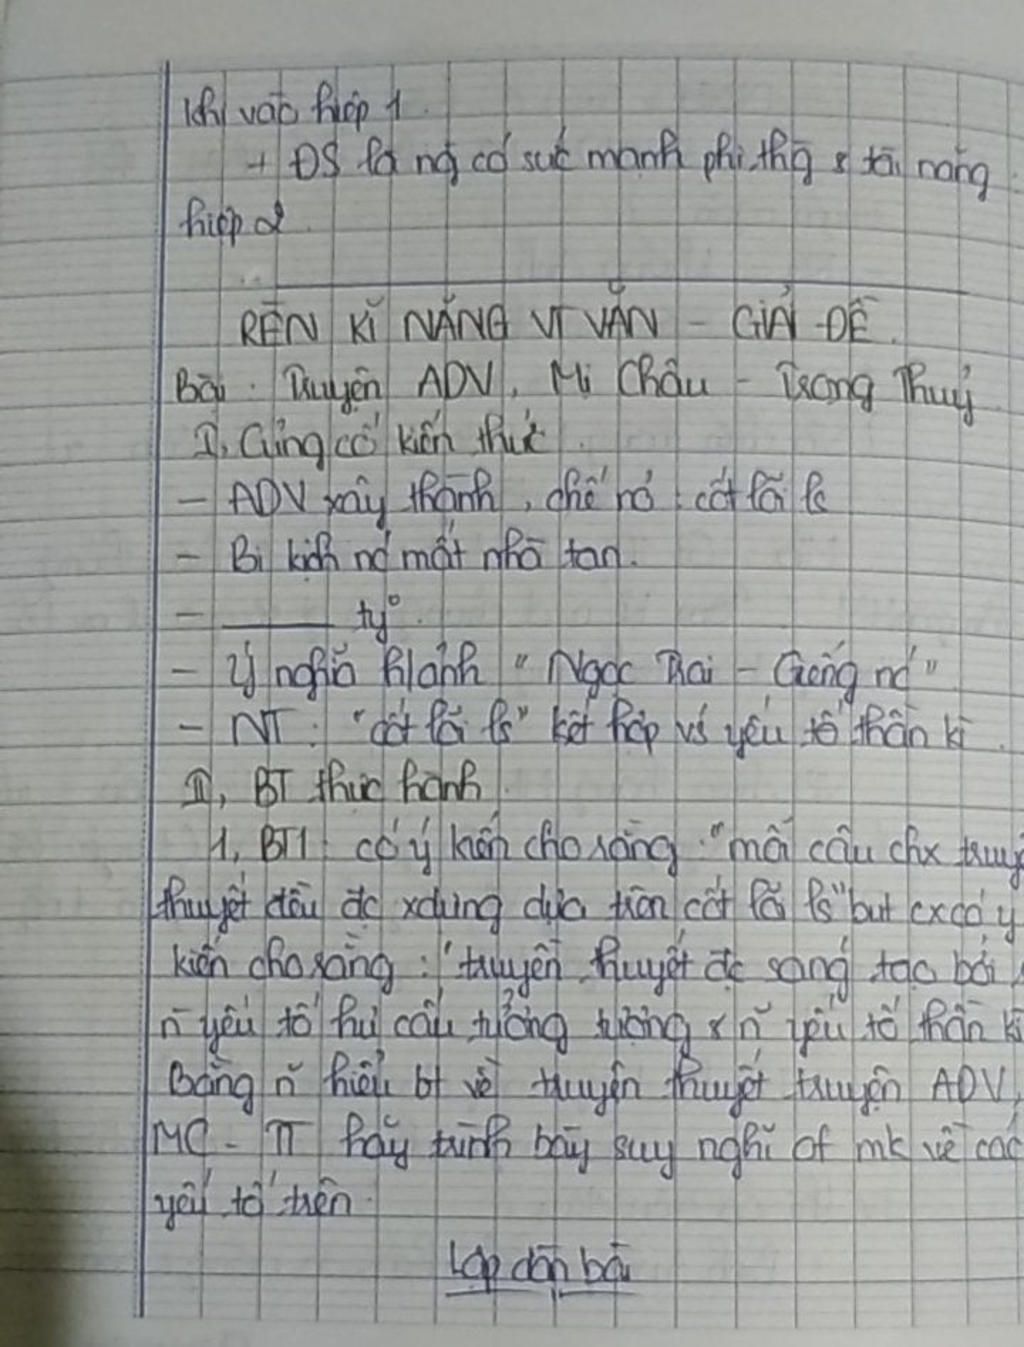 Khi vào hiệp 1.
+ ĐS là ng có sức mạnh phi thg & tài năng
hiệp 2.
RÈN KĨ NĂNG VT VĂN - GIẢI ĐỀ.
Bài: Truyện ADV, Mị Châu - Trọng Thuỷ
I, Củng cố kiến thức.
- ADV xây thành, chế nỏ: cốt lõi ls
- Bi kịch nc mất nhà tan.
- ty°.
- Ý nghĩa h/ảnh "Ngọc Trai - Giếng nc"
- NT: "cốt lõi ls" kết hợp vs yếu tố thần kì.
II, BT thực hành.
1, BT1: có ý kiến cho rằng: "mỗi câu chx truy
thuyết đều đc xdựng dựa trên cốt lõi ls" but cx có ý
kiến cho rằng: "truyền thuyết đc sáng tạo bởi
n~ yếu tố hư cấu tưởng tượng & n~ yếu tố thần kì
Bằng n~ hiểu bt về truyền thuyết truyện ADV,
MC - TT hãy trình bày suy nghĩ of mk về các
yếu tố trên.
Lập dàn bài